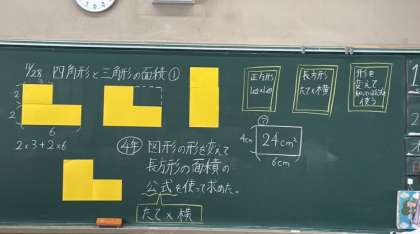 11/28 四角形と三角形の面積①
3
2
2
6
2×3+2×6
正方形
1辺×1辺
長方形
たて×横
形を
変えて
使う
㋐
4cm
24cm²
6cm
4年 図形の形を変えて
長方形の面積の
公式を使って求めた。
たて×横